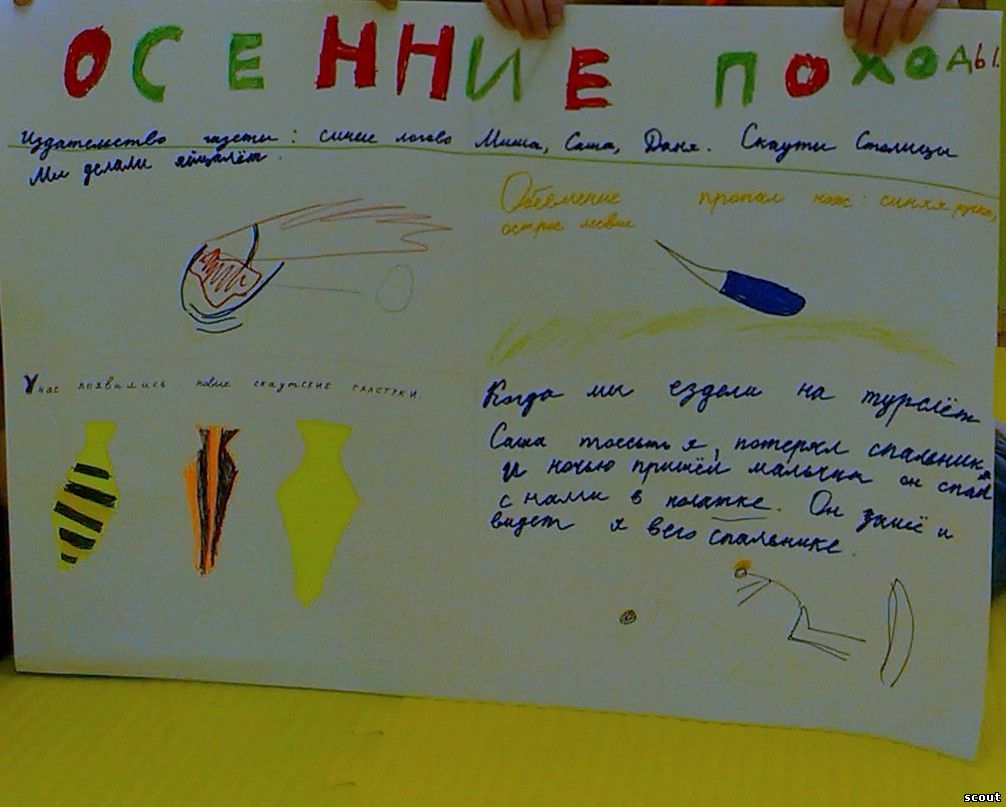 ОСЕННИЕ ПОХОДЫ.
Издательство газети: синие логово Миша, Саша, Даня. Скаути Столици
Ми делали
Обевление пропал нож: синяя ручка,
острое лезвие
У нас появились новые скаутские галстуки
Когда ми ездели на турслёт
Саша тоесть я, потерял спальник
И ночью пришёл мальчик он спал
с нами в палатке. Он зашё и
видет я вего спальнике.
scout